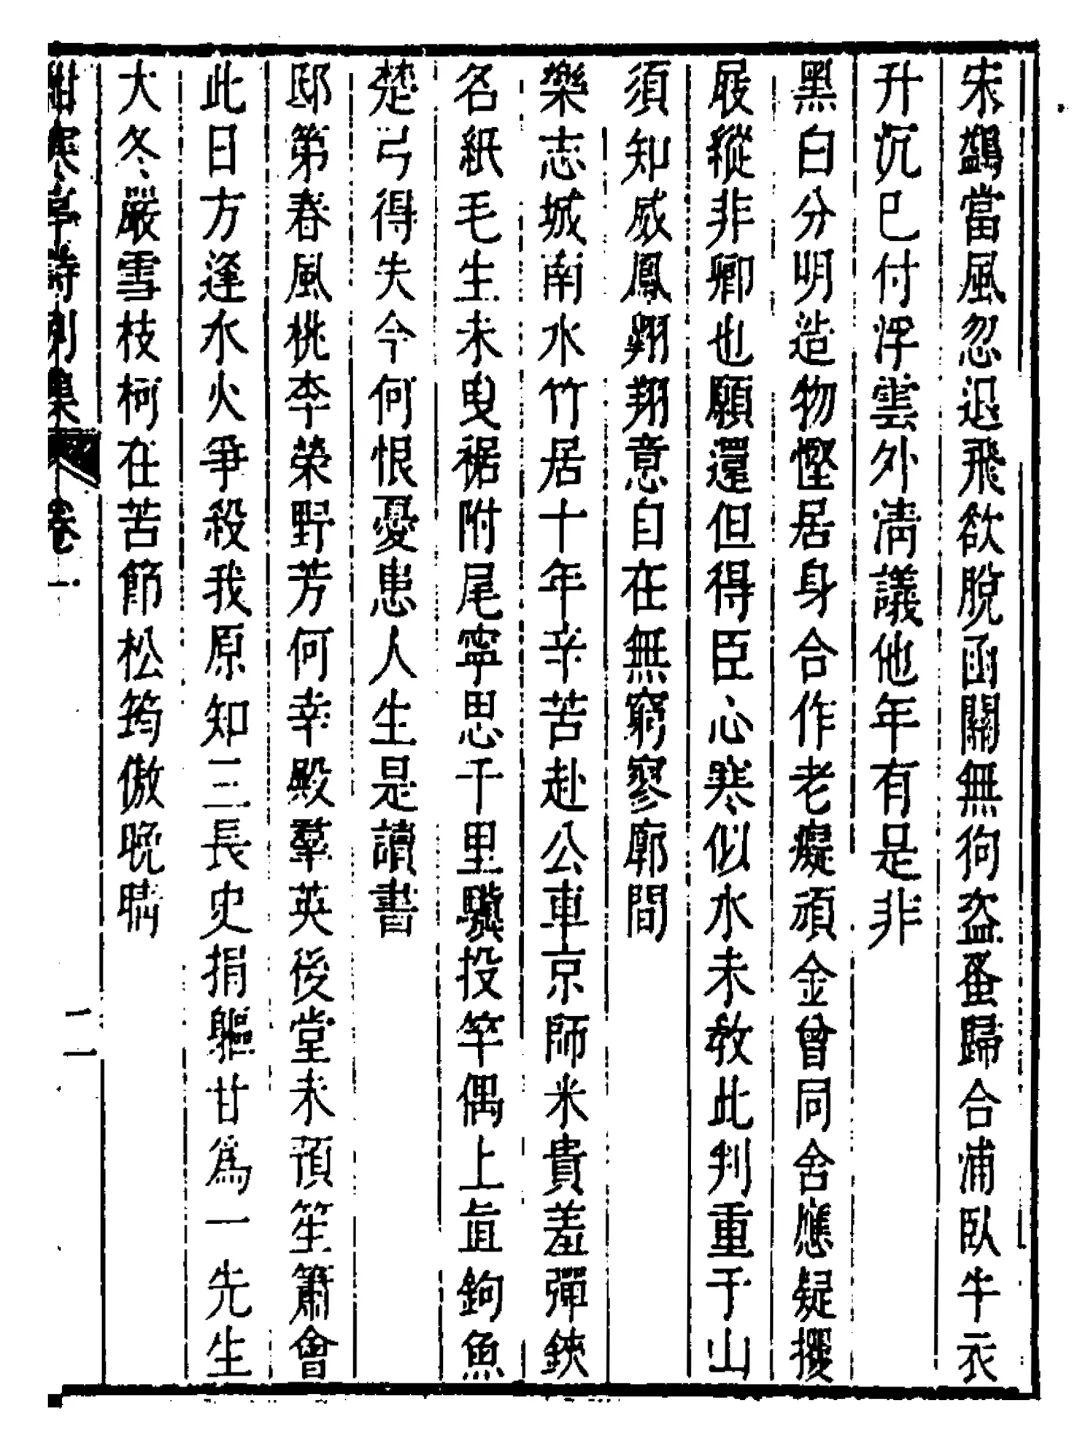 宋鷁當風忽退飛欲脫函關無狗盜蚤歸合浦臥牛衣
升沉已付浮雲外淸議他年有是非
黑白分明造物慳居身合作老癡頑金曾同舍應疑攫
屐縱非卿也願還但得臣心寒似水未敎此判重于山
須知威鳳翺翔意自在無窮寥廓間
樂志城南水竹居十年辛苦赴公車京師米貴羞彈鋏
名紙毛生未曳裾附尾寧思千里驥投竿偶上直鉤魚
楚弓得失今何恨憂患人生是讀書
邸第春風桃李榮野芳何幸殿羣英後堂未預笙簫會
此日方逢水火爭殺我原知三長史捐軀甘爲一先生
大冬嚴雪枝柯在苦節松筠傲晚晴
亭詩別集 卷一
二